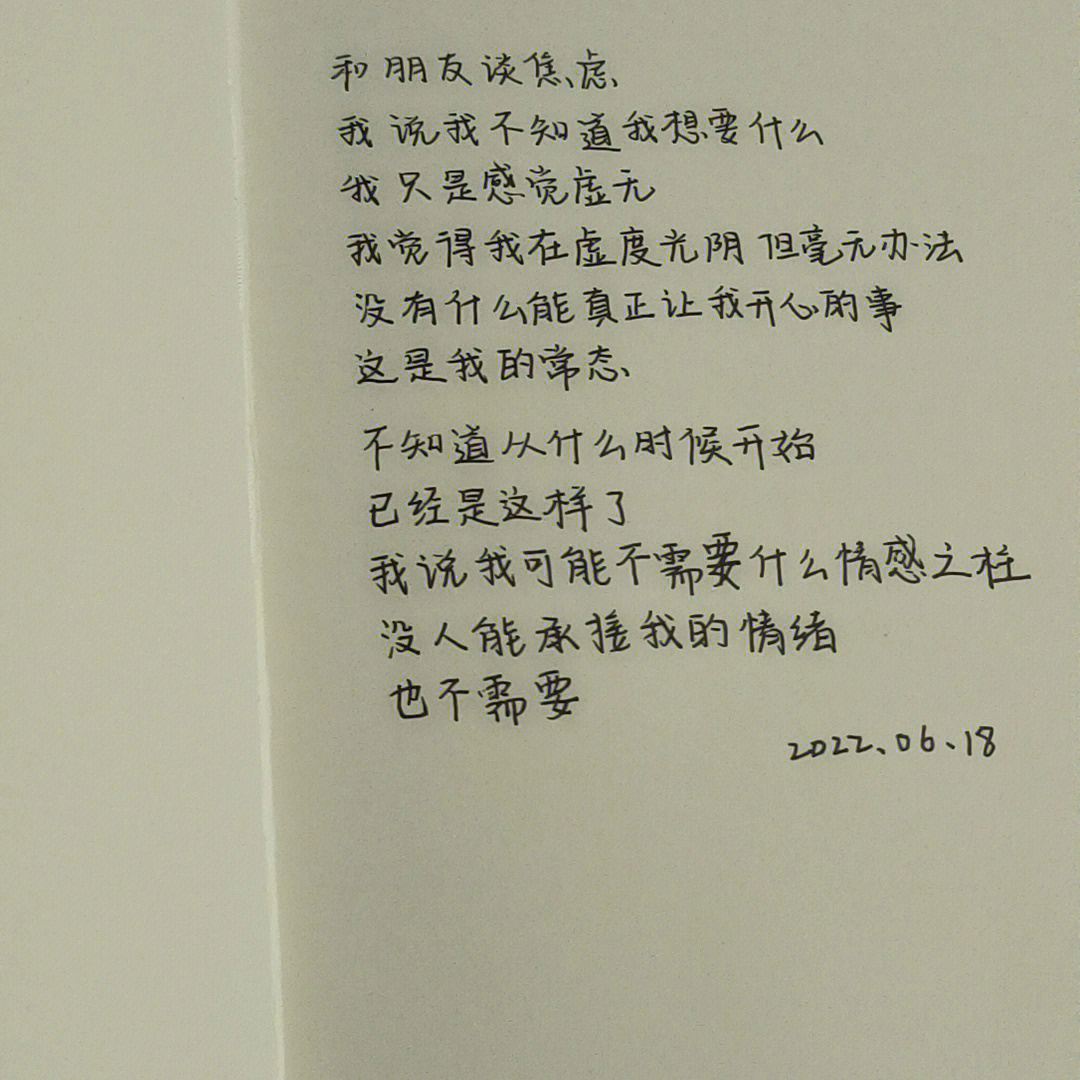 和朋友谈焦虑
我说我不知道我想要什么
我只是感觉虚无
我觉得我在虚度光阴但毫无办法
没有什么能真正让我开心的事
这是我的常态
不知道从什么时候开始
已经是这样了
我说我可能不需要什么情感之柱
没人能承接我的情绪
也不需要
2022.06.18